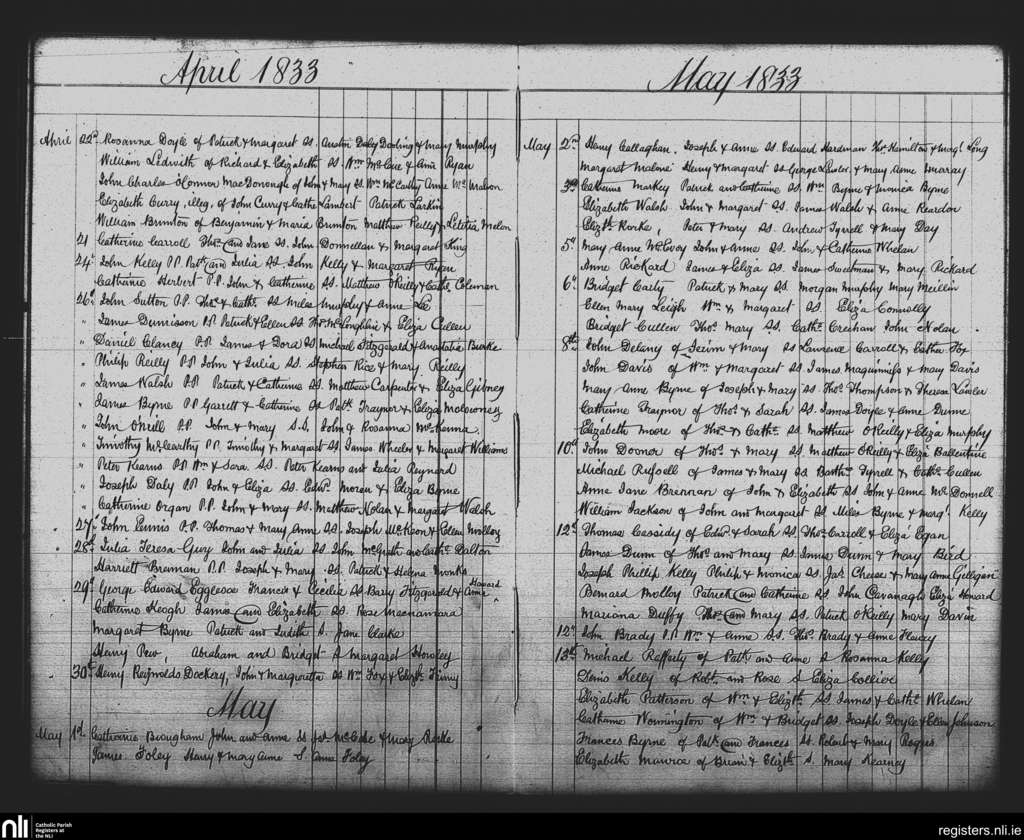 April 1833
April 22nd Rosanna Doyle of Patrick & Margaret Ss. Austin Daly Dowling & Mary Murphy
William Ledwith of Richard & Elizabeth Ss Wm McCave & Ann Ryan
John Charles O'Connor MacDonough of John & Mary Ss Wm McCarthy Anne Mc Mahon
Elizabeth Curry, illeg. of John Curry & Cathe Lambert Patrick Larkin
William Brunton of Benjamin & Maria Brunton Matthew Reilly & Letitia Melon
21 Catherine Carroll Thos. and Jane Ss. John Donnellan & Margaret King
24th John Kelly P.P. Patk and Julia Ss. John Kelly & Margaret Ryan
Catherine Herbert P.P. John & Catherine Ss. Matthew O'Reilly & Cathe. Coleman
26th John Sutton P.P. Thos. & Cath. Ss Miles Murphy & Anne Lee
" James Dunnison P.P. Patrick & Ellen Ss Thos. McLoughlin & Eliza Cullen
" Daniel Clancy P.P. James & Dora Ss Michael Fitzgerald & Anastatia Burke
" Philip Reilly P.P. John & Julia Ss. Stephen Rice & Mary Reilly
" James Walsh P.P. Patrick & Catherine Ss. Matthew Carpenter & Eliza Gibney
" James Byrne P.P. Garrett & Catherine Ss Patk. Traynor & Eliza
" John O'Neill P.P. John & Mary S.S. John & Rosanna McKenna
" Timothy McCearthy P.P. Timothy & Margaret Ss James Wheelen & Margaret Williams
" Peter Kearns P.P. Wm & Sara. Ss. Peter Kearns and Julia Reynard
" Joseph Daly P.P. John & Eliza Ss. Edwd. Moran & Eliza Byrne
" Catherine Organ P.P. John & Mary Ss. Matthew Nolan & Margaret Walsh
27th John Ennis P.P. Thomas & Mary Ann Ss. Joseph McKeon & Ellen Molloy
28th Julia Teresa Gury John and Julia Ss John McGrath and Cathe. Dalton
Harriett Brennan P.P. Joseph & Mary Ss. Patrick & Helena Monks
Howard
29th George Edward Egglesoe Francis & Cecilia Ss Barry Fitzgerald & Anne
Catherine Keogh James and Elizabeth Ss. Rose Macnamara
Margaret Byrne Patrick and Judith S. Jane Clarke
Henry Pew, Abraham and Bridget S Margaret Howley
30th Henry Reynolds Dockery, John & Margaretta Ss Wm Fox & Elizth.
May
May 1st Catherine Brougham John and Anne Ss & Mary Rorke
James Foley Harry & Mary Anne S. Anne Foley
May 1833
May 2nd Henry Callaghan, Joseph & Anne Ss. Edward Hardman Thos. Hamilton & Margt. Long
Margaret Malone Henry & Margaret Ss George Lawlor & Mary Anne Murray
3rd Catherine Markey Patrick and Catherine Ss. Wm Byrne & Monica Byrne
Elizabeth Walsh John & Margaret Ss. James Walsh & Anne Reardon
Elizth. Rorke, Peter & Mary Ss. Andrew Tyrrell & Mary Day
5th Mary Anne McEvoy John & Anne Ss. John & Catherine Whelan
Anne Rickard James & Eliza Ss. James Sweetman & Mary Rickard
6th Bridget Carty Patrick & Mary Ss. Morgan Murphy Mary
Ellen Mary Leigh Wm & Margaret Ss. Eliza Connolly
Bridget Cullen Thos. Mary Ss. Cathe. Creehan John Nolan
8th John Delany of & Mary Ss Lawrence Carroll & Esther Fox
John Davis of Wm & Margaret Ss James Maguinness & Mary Davis
Mary Anne Byrne of Joseph & Mary Ss. Thos. Thompson & Theresa Lawler
Catherine Traynor of Thos. & Sarah Ss. James Doyle & Anne Dunne
Elizabeth Moore of Thos. & Cathe. Ss. Matthew O'Reilly & Eliza Murphy
10th John Doonor of Thos. & Mary Ss Matthew O'Reilly & Eliza Ballentine
Michael Russell of James & Mary Ss Barthw. Tyrell & Cathe. Cullen
Anne Jane Brennan of John & Elizabeth Ss John & Anne McDonnell
William Jackson of John and Margaret Ss Miles Byrne & Margt. Kelly
12th Thomas Cassidy of Edwd. & Sarah Ss. Thos. Carroll & Eliza Egan
James Dunn of Thos. and Mary Ss. James Dunn & Mary Bird
Joseph Phillip Kelly Philip & Monica Ss. Jas. Cheese & Mary Anne Gilligan
Bernard Molloy Patrick and Catherine Ss. John Cavanagh Eliza Howard
Mariana Duffy Thos. and Mary Ss. Patrick O'Reilly Mary Davin
12th John Brady P.P. Wm & Anne Ss. Thos. Brady & Anne Fleury
13th Michael Rafferty of Patk. and Anne S Rosanna Kelly
Denis Kelly of Robt. and Rose S Eliza Collier
Elizabeth Patterson of Wm & Elizth. Ss James & Cathe. Whelan
Catherine Wornington of Wm & Bridget Ss. Joseph Doyle & Ellen Johnson
Frances Byrne of Patk. and Frances Ss. Robert & Mary Rogers
Elizabeth Maurice of Brian & Elizth. S. Mary Kearney
nli Catholic Parish Registers at the NLI
registers.nli.ie